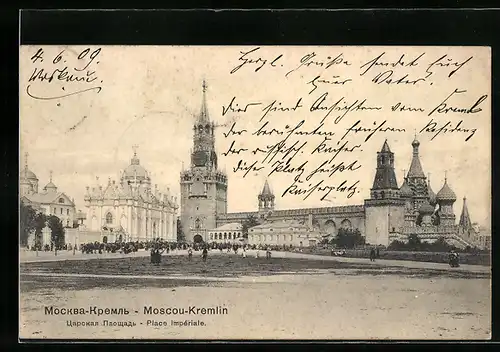 4. 6. 09.
Moskau.
Herzl. Grüße sendet Euch
Euer Vater.
Dies sind Ansichten vom Kreml
der berühmten früheren Residenz
der russisch. Kaiser.
Dieser Platz heisst
Kaiserplatz.
Москва-Кремль - Moscou-Kremlin
Царская Площадь - Place Impériale.